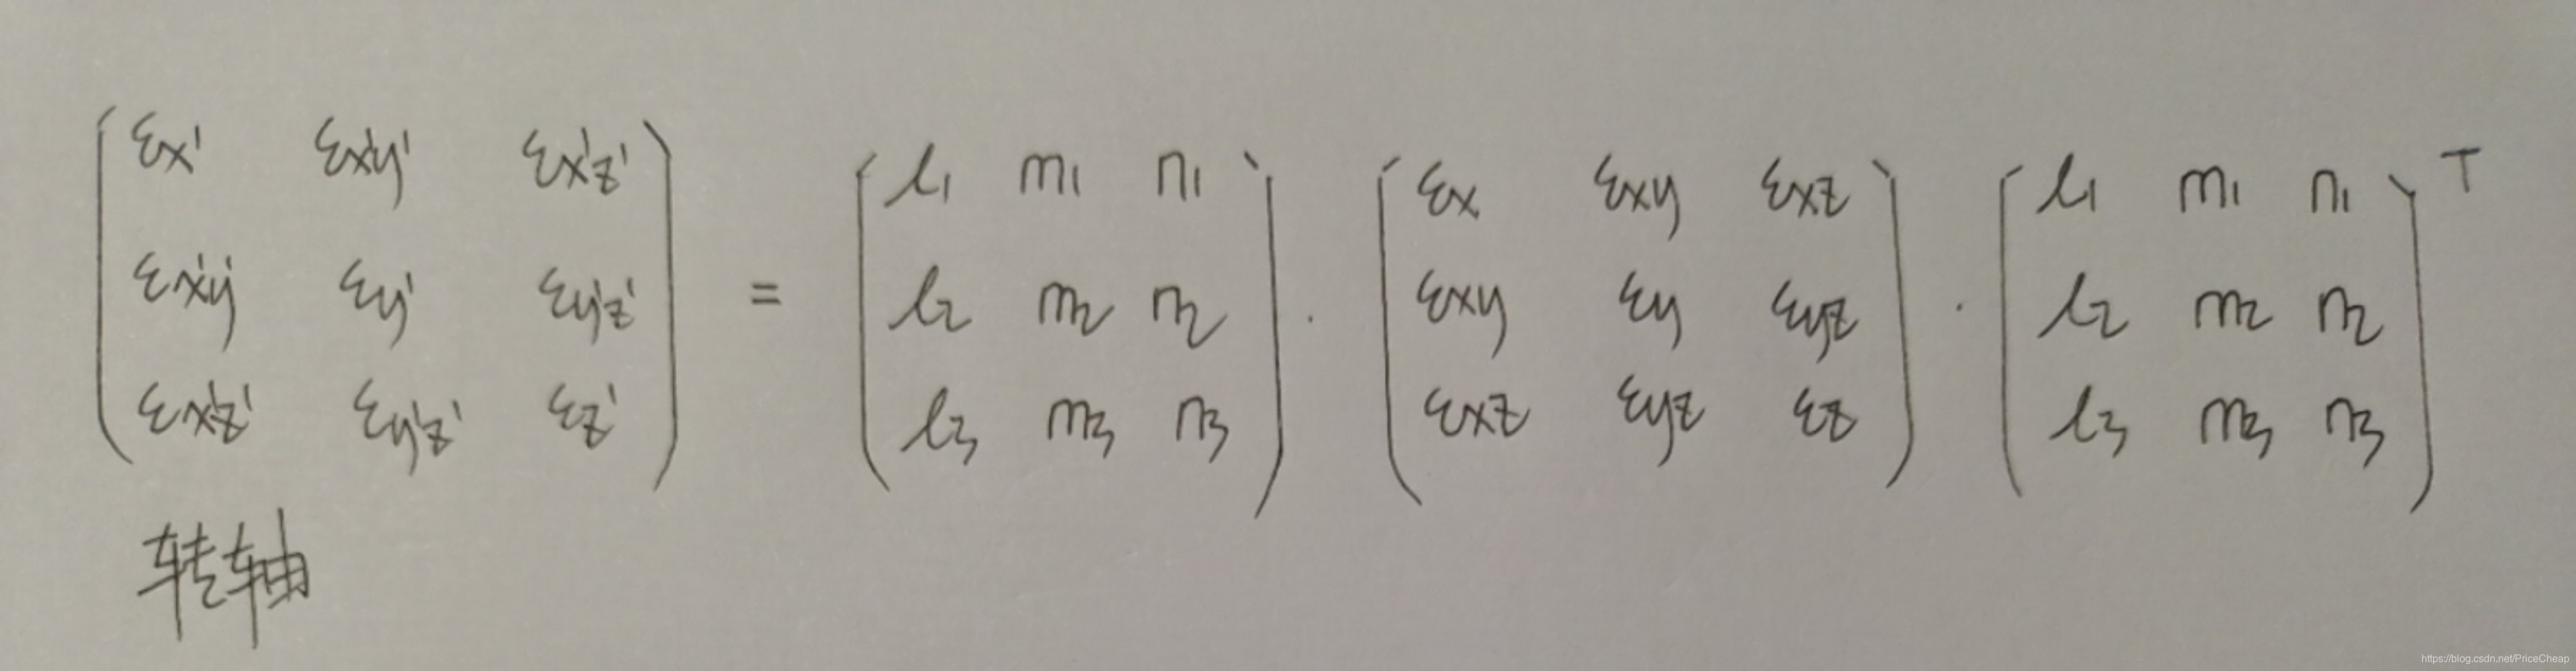 $\begin{pmatrix} \varepsilon_{x'} & \varepsilon_{x'y'} & \varepsilon_{x'z'} \\ \varepsilon_{x'y'} & \varepsilon_{y'} & \varepsilon_{y'z'} \\ \varepsilon_{x'z'} & \varepsilon_{y'z'} & \varepsilon_{z'} \end{pmatrix} = \begin{pmatrix} l_1 & m_1 & n_1 \\ l_2 & m_2 & n_2 \\ l_3 & m_3 & n_3 \end{pmatrix} \cdot \begin{pmatrix} \varepsilon_x & \varepsilon_{xy} & \varepsilon_{xz} \\ \varepsilon_{xy} & \varepsilon_y & \varepsilon_{yz} \\ \varepsilon_{xz} & \varepsilon_{yz} & \varepsilon_z \end{pmatrix} \cdot \begin{pmatrix} l_1 & m_1 & n_1 \\ l_2 & m_2 & n_2 \\ l_3 & m_3 & n_3 \end{pmatrix}^T$
转轴
https://blog.csdn.net/PriceCheap